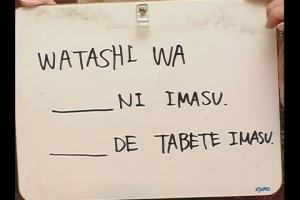 WATASHI WA
_____ NI IMASU.
_____ DE TABETE IMASU.
EXPO